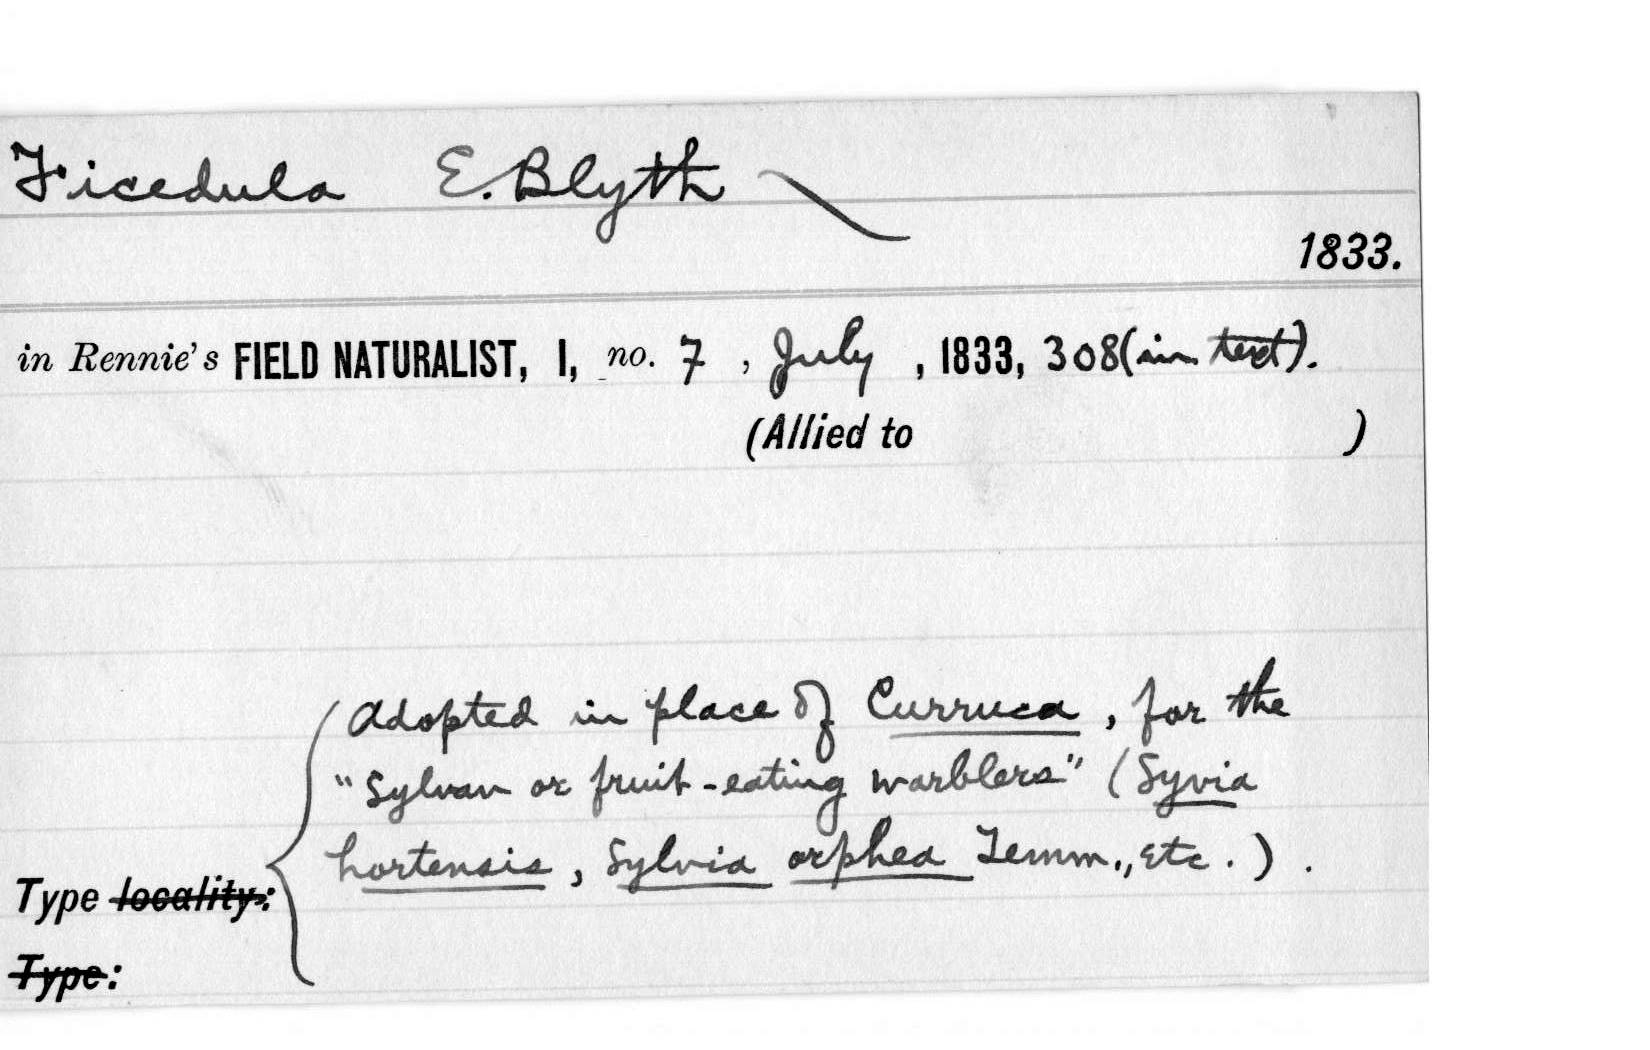 Ficedula E. Blyth
1833.
in Rennie's FIELD NATURALIST, I, no. 7, July, 1833, 308 (in text).
(Allied to )
Adopted in place of Curruca, for the
"Sylvan or fruit-eating warblers" (Syvia
hortensis, Sylvia orphea Temm., etc.).
Type locality:
Type: